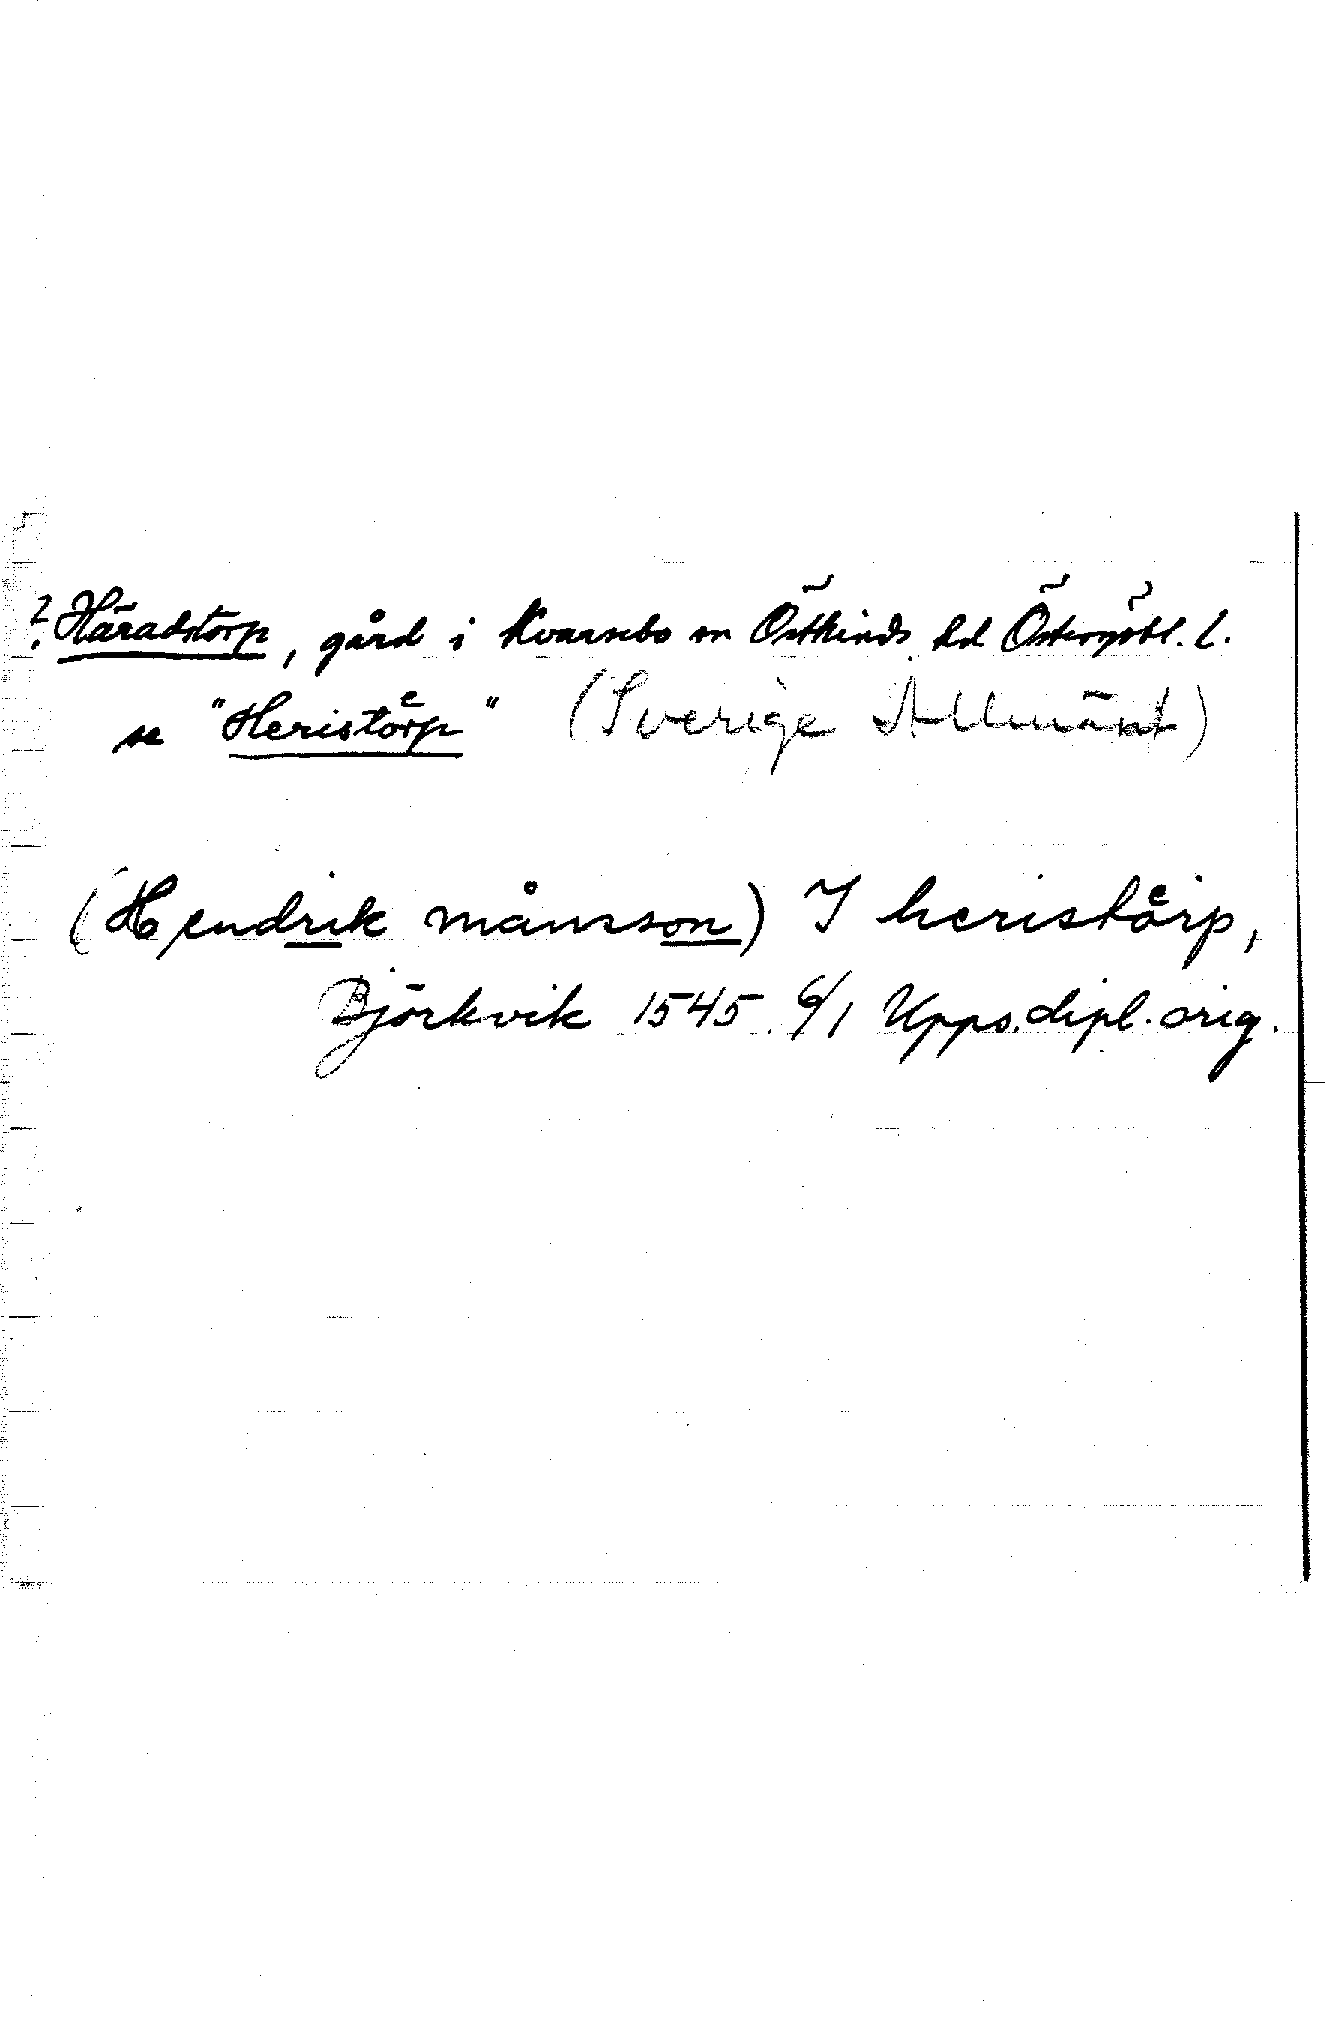 ? Häradstorp, gård i Kvarsebo sn Östkinds hd Östergötl. l.
se "Heristoͤrp" (Sverige Allmänt)
(Hendrik månsson) I heristoͤrp,
Björkvik 1545 6/1 Upps. dipl. orig.